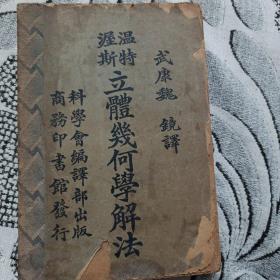 武康魏 鏡譯
溫特
渥斯
立體幾何學解法
科學會編譯部出版
商務印書館發行